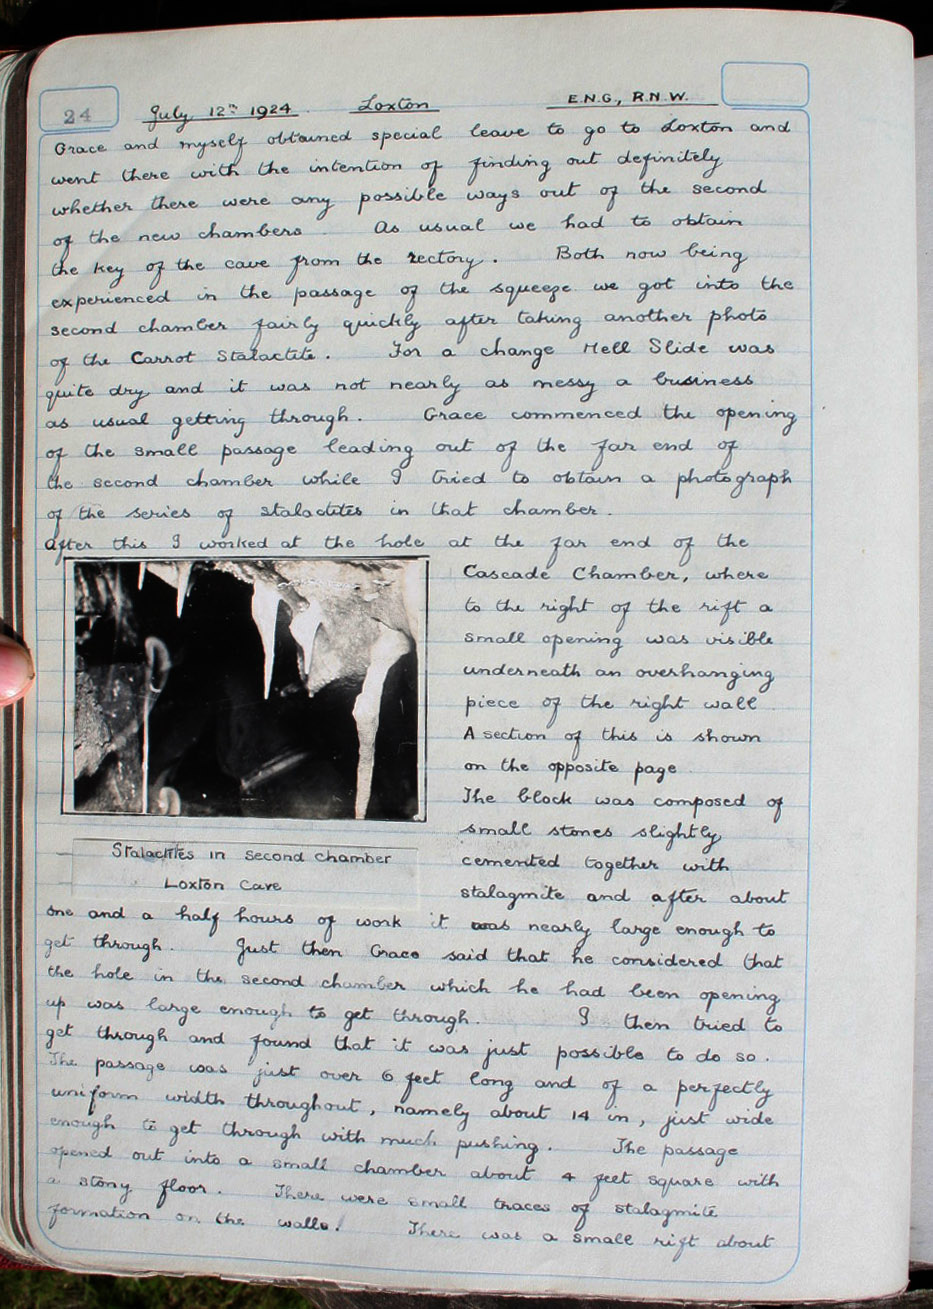 24 July 12th 1924 Loxton E.N.G., R.N.W.
Grace and myself obtained special leave to go to Loxton and
went there with the intention of finding out definitely
whether there were any possible ways out of the second
of the new chambers. As usual we had to obtain
the key of the cave from the rectory. Both now being
experienced in the passage of the squeeze we got into the
second chamber fairly quickly after taking another photo
of the Carrot Stalactite. For a change Hell Slide was
quite dry and it was not nearly as messy a business
as usual getting through. Grace commenced the opening
of the small passage leading out of the far end of
the second chamber while I tried to obtain a photograph
of the series of stalactites in that chamber.
After this I worked at the hole at the far end of the
Cascade Chamber, where
to the right of the rift a
small opening was visible
underneath an overhanging
piece of the right wall
A section of this is shown
on the opposite page.
The block was composed of
small stones slightly
cemented together with
stalagmite and after about
Stalactites in second chamber
Loxton Cave
one and a half hours of work it was nearly large enough to
get through. Just then Grace said that he considered that
the hole in the second chamber which he had been opening
up was large enough to get through. I then tried to
get through and found that it was just possible to do so.
The passage was just over 6 feet long and of a perfectly
uniform width throughout, namely about 14 in, just wide
enough to get through with much pushing. The passage
opened out into a small chamber about 4 feet square with
a stony floor. There were small traces of stalagmite
formation on the walls. There was a small rift about